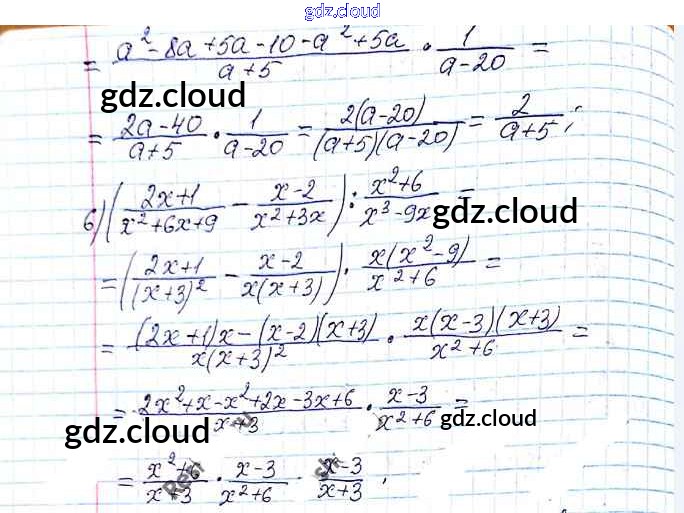 gdz.cloud
= (a² - 8a + 5a - 10 - a² + 5a)/(a + 5) · 1/(a - 20) =
gdz.cloud
= (2a - 40)/(a + 5) · 1/(a - 20) = 2(a - 20)/((a + 5)(a - 20)) = 2/(a + 5);
6) ((2x + 1)/(x² + 6x + 9) - (x - 2)/(x² + 3x)) : (x² + 6)/(x³ - 9x) =
gdz.cloud
= ((2x + 1)/(x + 3)² - (x - 2)/(x(x + 3))) · x(x² - 9)/(x² + 6) =
= ((2x + 1)x - (x - 2)(x + 3))/(x(x + 3)²) · x(x - 3)(x + 3)/(x² + 6) =
= (2x² + x - x² + 2x - 3x + 6)/(x + 3) · (x - 3)/(x² + 6) =
gdz.cloud
gdz.cloud
= (x² + 6)/(x + 3) · (x - 3)/(x² + 6) (x - 3)/(x + 3).